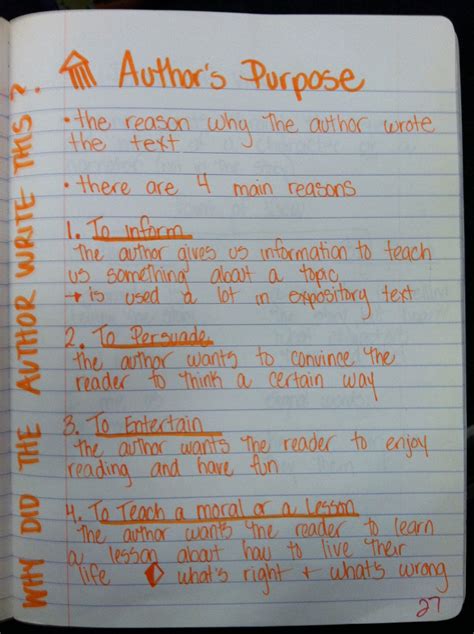 Author's Purpose
• the reason why the author wrote
the text
• there are 4 main reasons
1. To Inform
the author gives us information to teach
us something about a topic
→ is used a lot in expository text
2. To Persuade
the author wants to convince the
reader to think a certain way
3. To Entertain
the author wants the reader to enjoy
reading and have fun
4. To Teach a moral or a Lesson
the author wants the reader to learn
a lesson about how to live their
life ◊ what's right + what's wrong
WHY DID THE AUTHOR WRITE THIS?
27